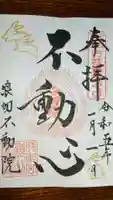 奉拝
令和五年
一月一日
不動心
不動院